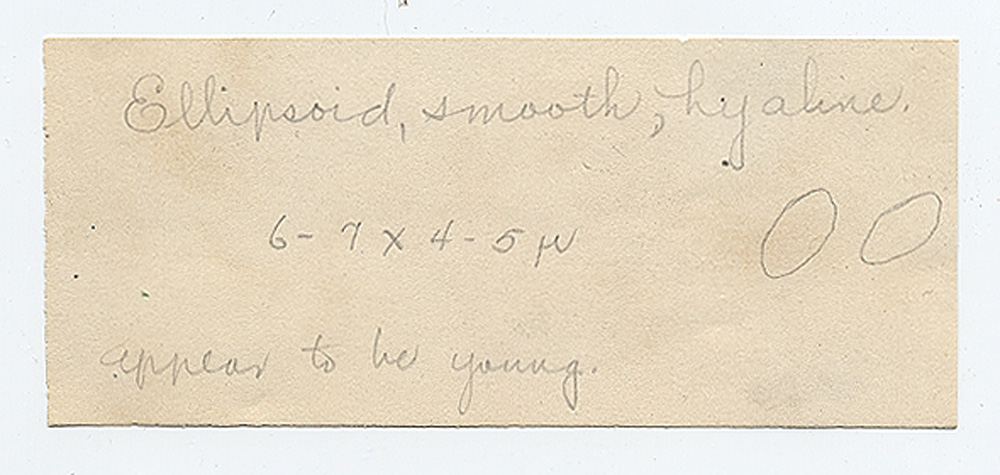 Ellipsoid, smooth, hyaline.
6-7 x 4-5 μ
appear to be young.